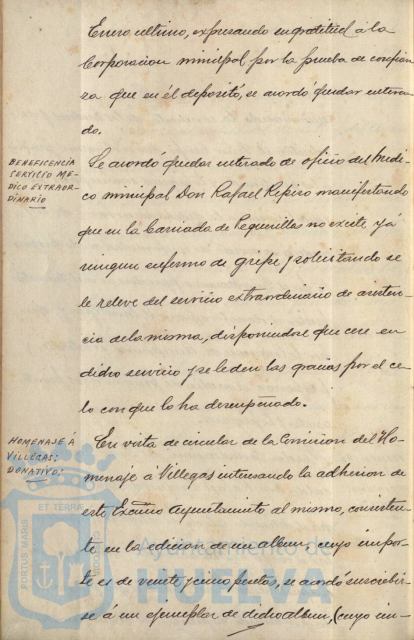 Enero ultimo, expresando su gratitud á la
Corporacion municipal por la prueba de confian
za que en él depositó, se acordó quedar entera
do.
BENEFICENCIA
SERVICIO ME-
DICO EXTRAOR-
DINARIO
Se acordó quedar enterado de oficio del Médi
co municipal Don Rafael manifestando
que en la Barriada de Pequerillas no existe yá
ningun enfermo de gripe y solicitando se
le releve del servicio extraordinario de asisten
cia de la misma, disponiendose que cese en
dicho servicio y se le den las gracias por el ce-
lo con que lo ha desempeñado.
HOMENAJE Á
VILLEGAS:
DONATIVO:
En vista de circular de la Comision del Ho-
menaje á Villegas interesando la adhesion de
este Excmo Ayuntamiento al mismo, consisten-
te en la edicion de un album, cuyo impor-
te es de veinte y cinco pesetas, se acordó suscribir-
se á un ejemplar de dicho album, (cuyo im-
PORTUS MARIS
ET TERRÆ
Ayuntamiento de
HUELVA